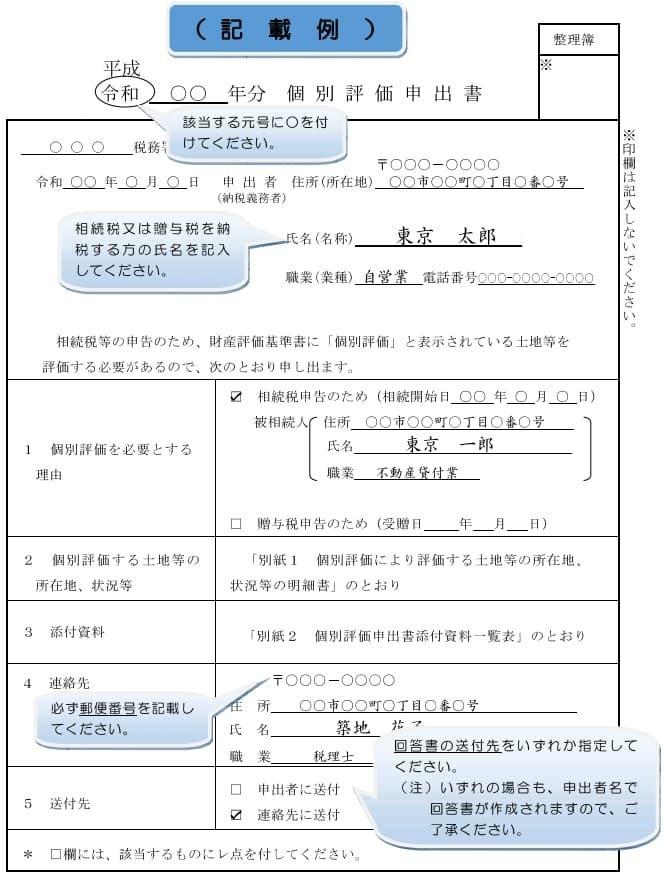 （ 記 載 例 ）
整理簿
※
平成
令和 〇〇 年分 個 別 評 価 申 出 書
該当する元号に〇を付
けてください。
〇 〇 〇 税務署
※印欄は記入しないでください。
〒〇〇〇－〇〇〇〇
令和 〇〇 年 〇 月 〇 日 申 出 者 住所(所在地) 〇〇市〇〇町〇丁目〇番〇号
(納税義務者)
相続税又は贈与税を納
税する方の氏名を記入
してください。
氏名(名称) 東京 太郎
職業(業種) 自営業 電話番号〇〇〇-〇〇〇〇-〇〇〇〇
相続税等の申告のため、財産評価基準書に「個別評価」と表示されている土地等を
評価する必要があるので、次のとおり申し出ます。
1 個別評価を必要とする
理由
☑ 相続税申告のため（相続開始日 〇〇 年 〇 月 〇 日）
被相続人 住所 〇〇市〇〇町〇丁目〇番〇号
氏名 東京 一郎
職業 不動産貸付業
□ 贈与税申告のため（受贈日 年 月 日）
2 個別評価する土地等の
所在地、状況等
「別紙１ 個別評価により評価する土地等の所在地、
状況等の明細書」のとおり
3 添付資料
「別紙２ 個別評価申出書添付資料一覧表」のとおり
4 連絡先
必ず郵便番号を記載し
てください。
〒〇〇〇－〇〇〇〇
住 所 〇〇市〇〇町〇丁目〇番〇号
氏 名 築地
職 業 税理士
回答書の送付先をいずれか指定して
ください。
（注）いずれの場合も、申出者名で
回答書が作成されますので、ご
了承ください。
5 送付先
□ 申出者に送付
☑ 連絡先に送付
＊ □欄には、該当するものにレ点を付してください。